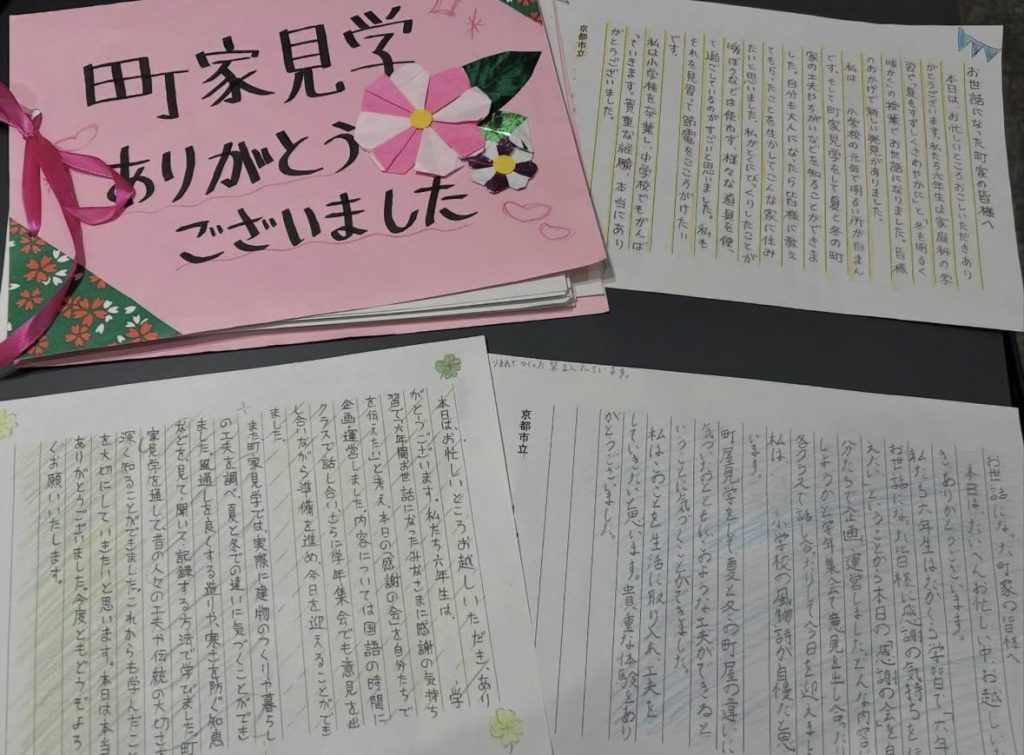 町家見学
ありがとう
ございました
京都市立
お世話になった町家の皆様へ
本日は、お忙しいところおこしいただきあり
がとうございます。私たち六年生は家庭科の学
習で「夏をすずしくさわやかに」と「冬を明るく
暖かく」の授業でお世話になりました。皆様
のおかげで新しい発見がありました。
私は 小学校の元気で明るい所が自まん
です。そして町家見学をして夏と冬の町
家の工夫やちがいなどを知ることができま
した。自分も大人になったら皆様に教え
てもらったことを生かしてこんな家に住み
たいと思いました。私がとくにびっくりしたことが
暖ぼうなどは使わず、様々な道具を使
って過ごしているのがすごいと思いました。私も
それを見習って節電をこころがけたい
です。
私は小学校を卒業し、中学校でもがんば
っていきます。貴重な経験、本当にあり
がとうございました。
本日は、お忙しいところお越しいただき、あり
がとうございます。私たち六年生は、 学
習で六年間お世話になったみなさまに感謝の気持ち
を伝えたいと考え、本日の「感謝の会」を自分たちで
企画・運営しました。内容については国語の時間に
クラスで話し合い、さらに学年集会でも意見を出
し合いながら準備を進め、今日を迎えることができ
ました。
また町家見学では、実際に建物のつくりや暮らし
の工夫を調べ、夏と冬での違いに気づくことができ
ました。風通しを良くする造りや、寒さを防ぐ知恵
などを見て、聞いて、記録する方法で学びました。町
家見学を通して、昔の人々の工夫や伝統の大切さを
深く知ることができました。これからも学んだこと
を大切にしていきたいと思います。本日は本当に
ありがとうございました。今度ともどうぞよろし
くお願いいたします。
京都市立
お世話になった町家の皆様へ
本日はたいへんお忙しい中、お越しい
きありがとうございます。
私たち六年生はたかくら学習で「六年
お世話になった皆様に感謝の気持ちを伝
えたい」ということから本日の「感謝の会」を自
分たちで企画・運営しました。どんな内容
しようかと学年集会で意見を出し合った
各クラスで話し合ったりして今日を迎えまし
私は、 小学校の風物詩が自慢だと思
います。
町屋見学をして、夏と冬の町屋の違いに
気づいたりどちらにもどのような工夫ができると
いうことに気づくことができました。
私はこのことを生活に取り入れ、工夫を
していきたいと思います。貴重な体験をあり
がとうございました。